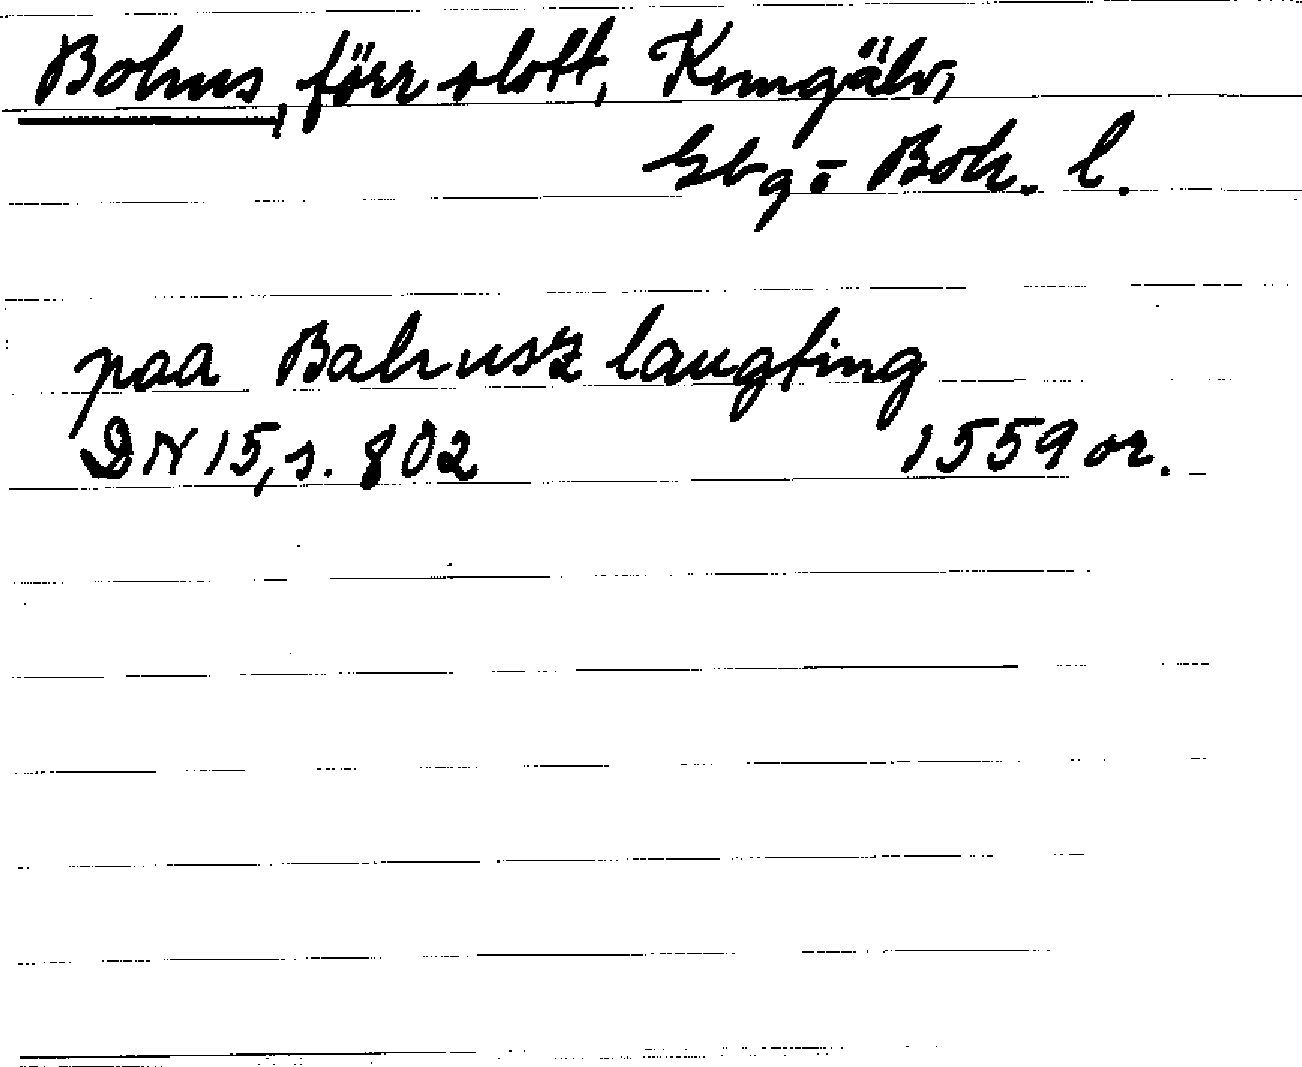 Bohus, förr slott, Kungälv,
Gbg o Boh. l.
paa Bahusz laugting
DN 15, s. 802 1559 or.